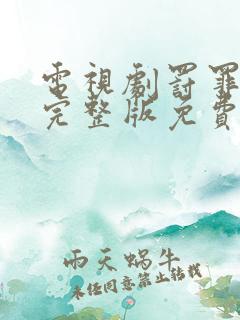 電視劇罰罪
完整版免費
雨天蝸牛
未經同意禁止轉載